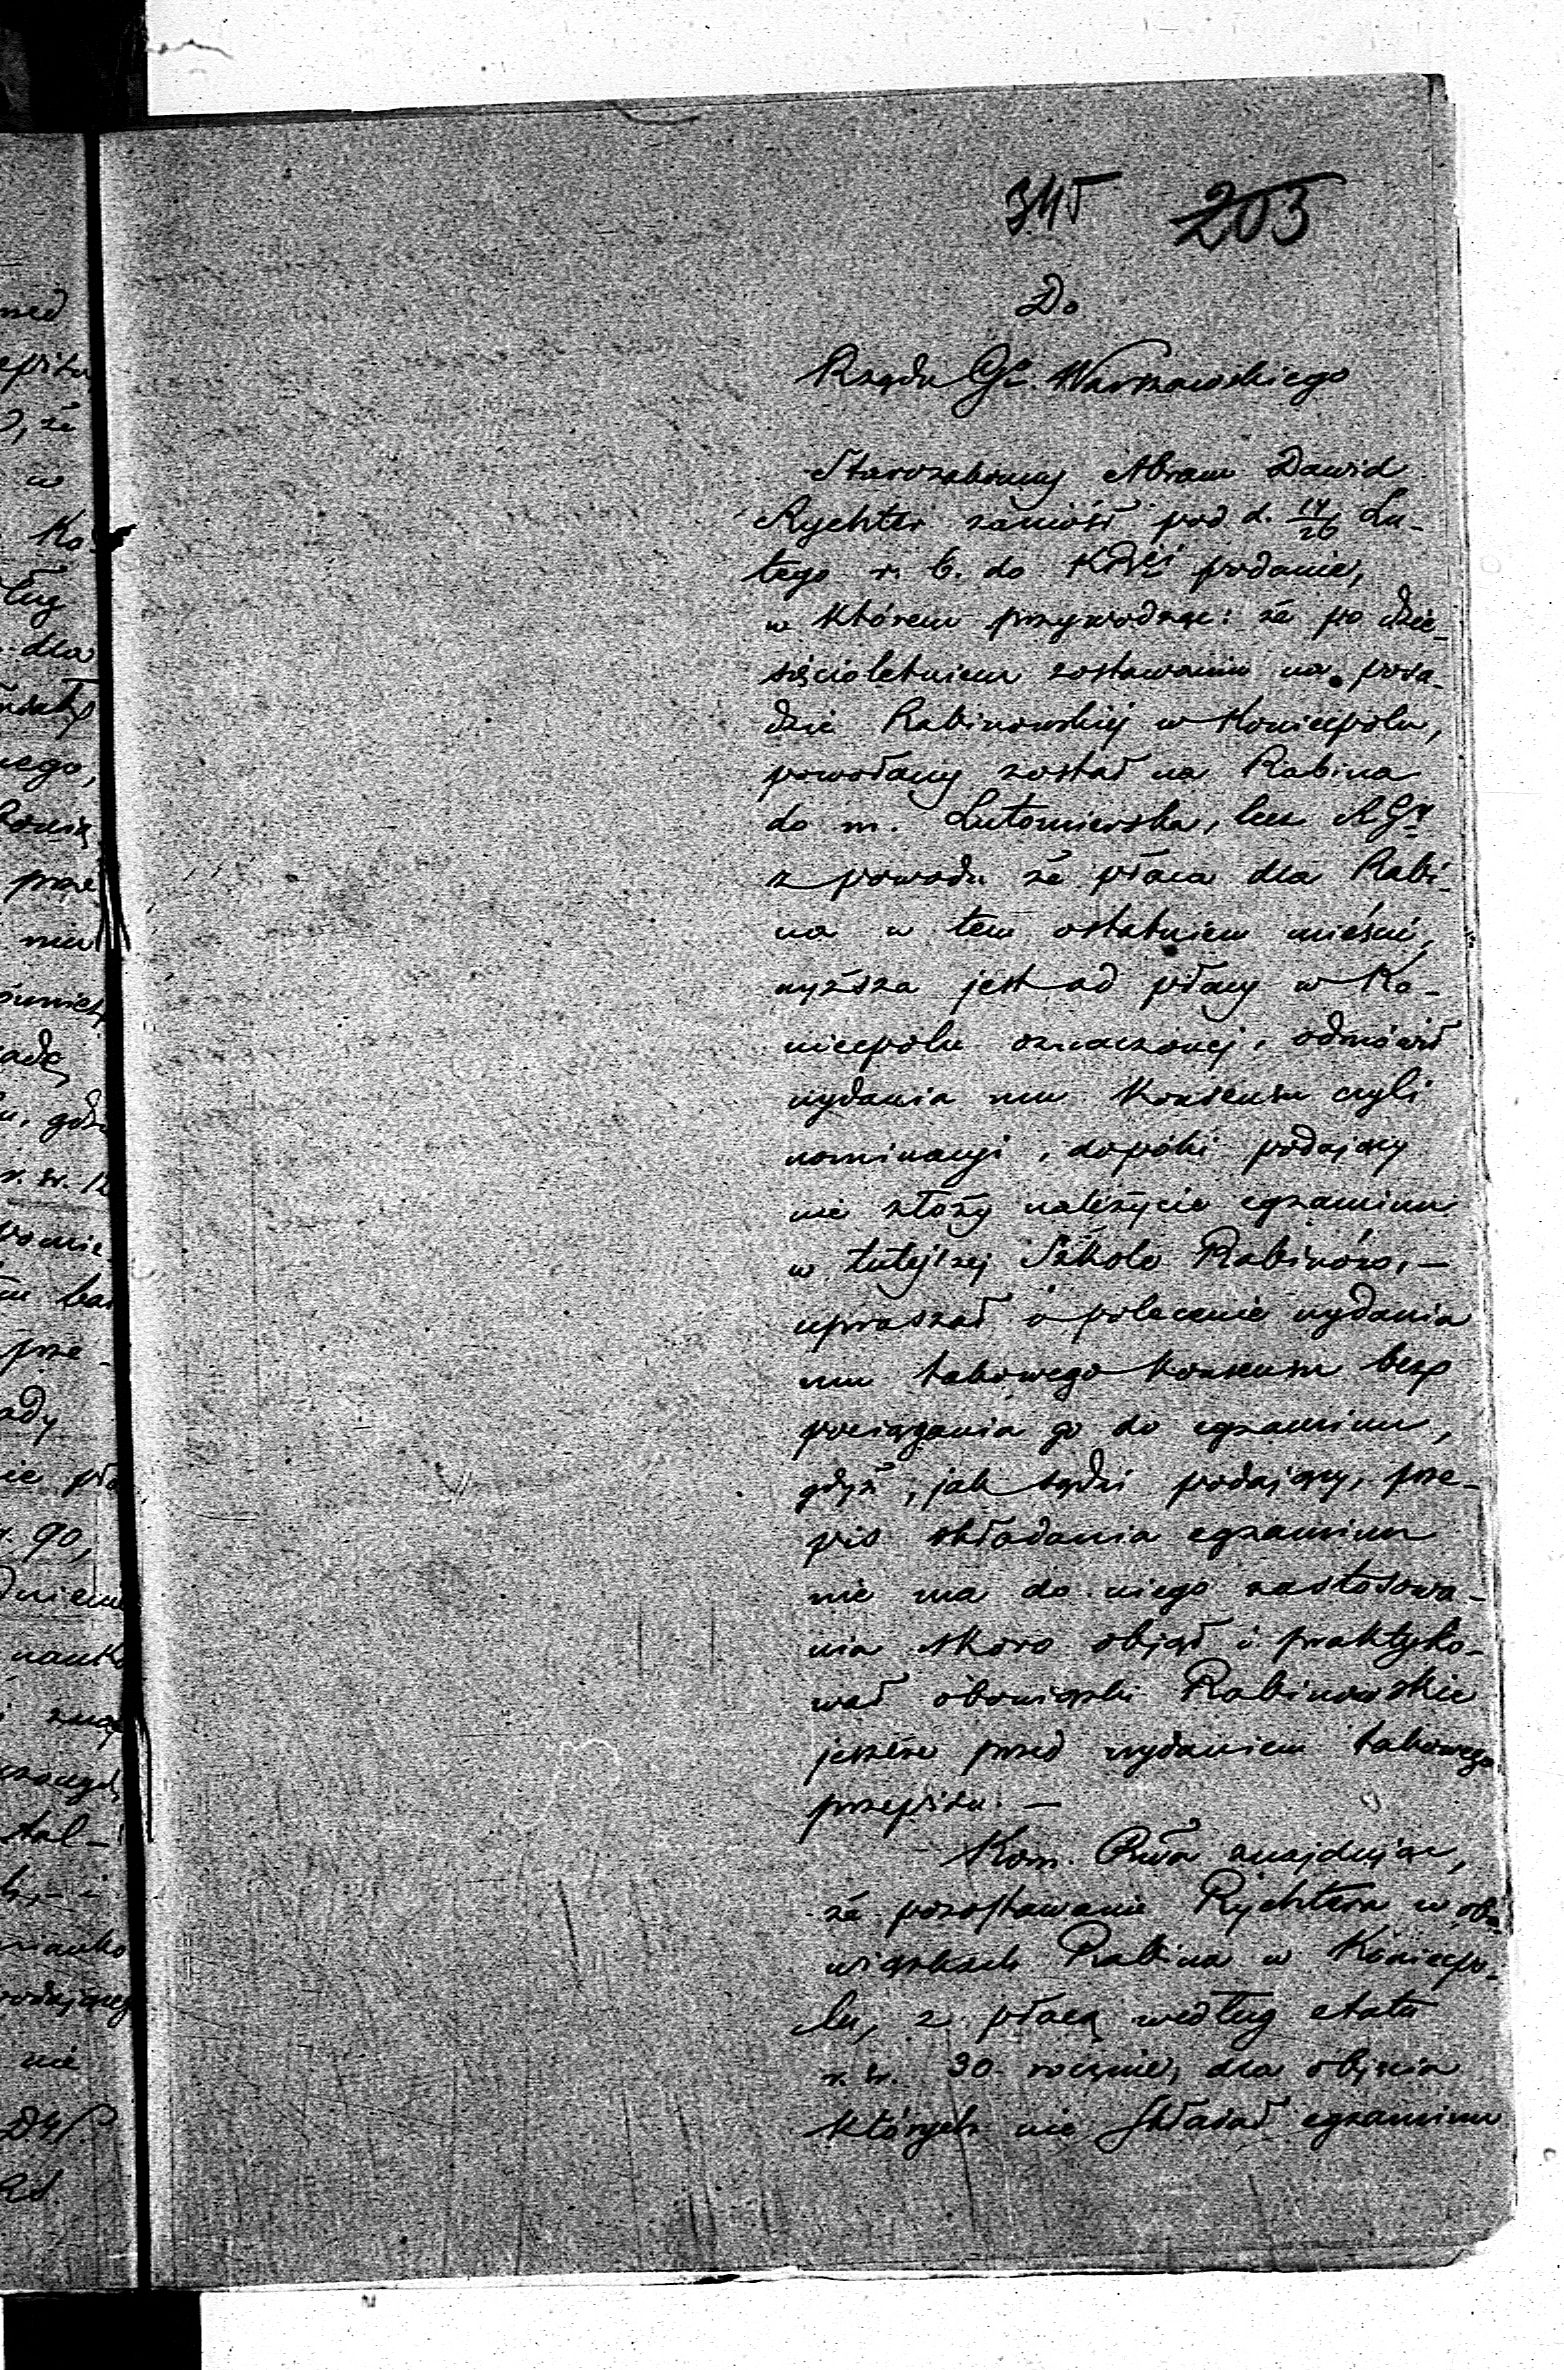 345 203
Do
Rządu Gu. Warszawskiego
Starozakonny Abram Dawid
Rychter zaniósł pod d. 14/26 Lu-
tego r. b. do KRéj podanie,
w którem przywodząc: że po dzie-
sięcioletniem zostawaniu na posa-
dzie Rabinowskiéj w Koniecpolu,
powołany został na Rabina
do m. Lutomierska, lecz RGy
z powodu że płaca dla Rabi-
na w tem ostatniem mieście,
wyższa jest od płacy w Ko-
niecpolu oznaczonéj, odmówił
wydania mu konsensu czyli
nominacyi, dopóki podający
nie złoży należycie egzaminu
w tutejszej Szkole Rabinów, —
upraszał o polecenie wydania
mu takowego konsensu bez
pociągania go do egzaminu,
gdyż, jak sądzi podający, prze-
pis składania egzaminu
nie ma do niego zastosowa-
nia skoro objął i praktyko-
wał obowiązki Rabinowskie
jeszcze przed wydaniem takowego
przepisu. —
Kom. Rwa znajdując,
że pozostawanie Rychtera w obo-
wiązkach Rabina w Koniecpo-
lu, z płacą według etatu
r. sr. 90 rocznie, dla objęcia
których nie składał egzaminu